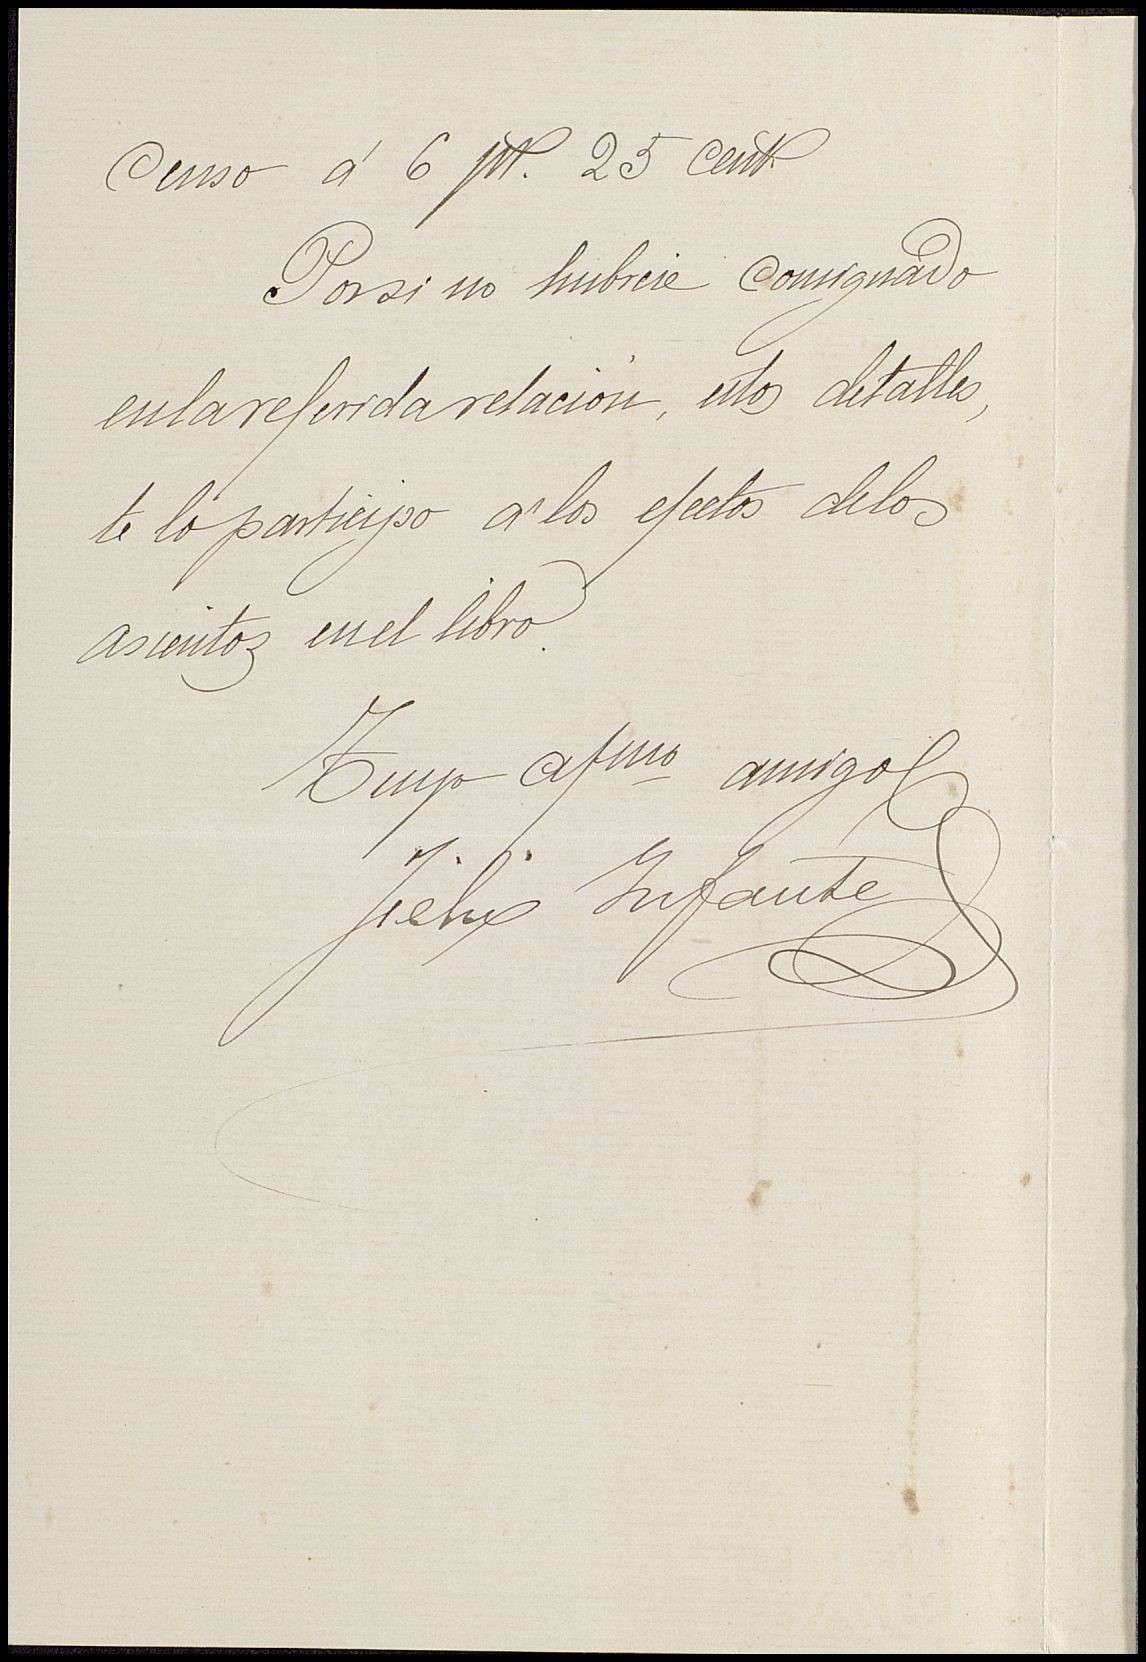 censo á 6 pts. 25 cents
Por si no hubiere consignado
en la referida relación, estos detalles,
te lo participo á los efectos de los
asientos en el libro.
Tuyo afmo amigo
Felix Infante